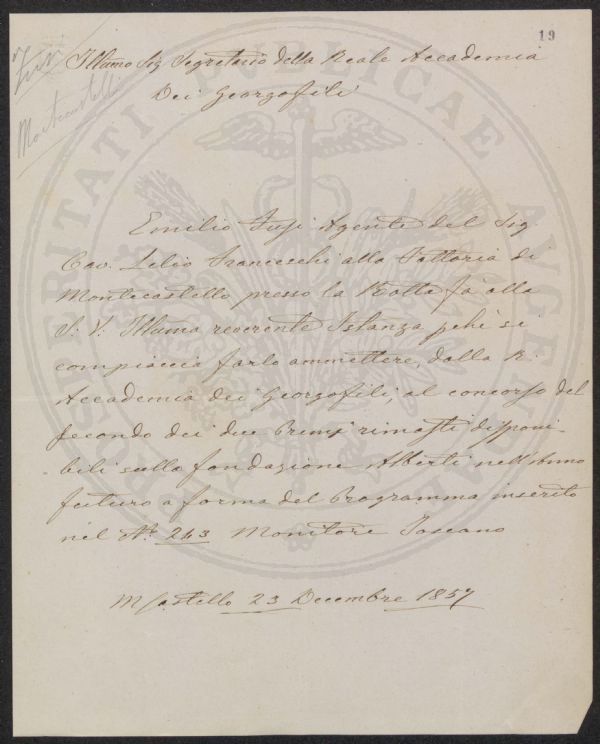 19
Fusi
Montecastello
Illmo Sig Segretario della Reale Accademia
Dei Georgofili
Emilio Fusi Agente del Sig.
Cav. Lelio Franceschi alla Fattoria di
Montecastello presso la Rotta fà alla
S: V: Illuma reverente Istanza pchè si
compiaccia farlo ammettere, dalla R.
Accademia dei Georgofili, al concorso del
secondo dei due Premj rimasti disponi
bili sulla fondazione Alberti nell'Anno
futuro a forma del Programma inserito
nel No. 243 Monitore Toscano
M Castello 23 Decembre 1857
PROSPERITATI PUBLICAE AUGENDAE